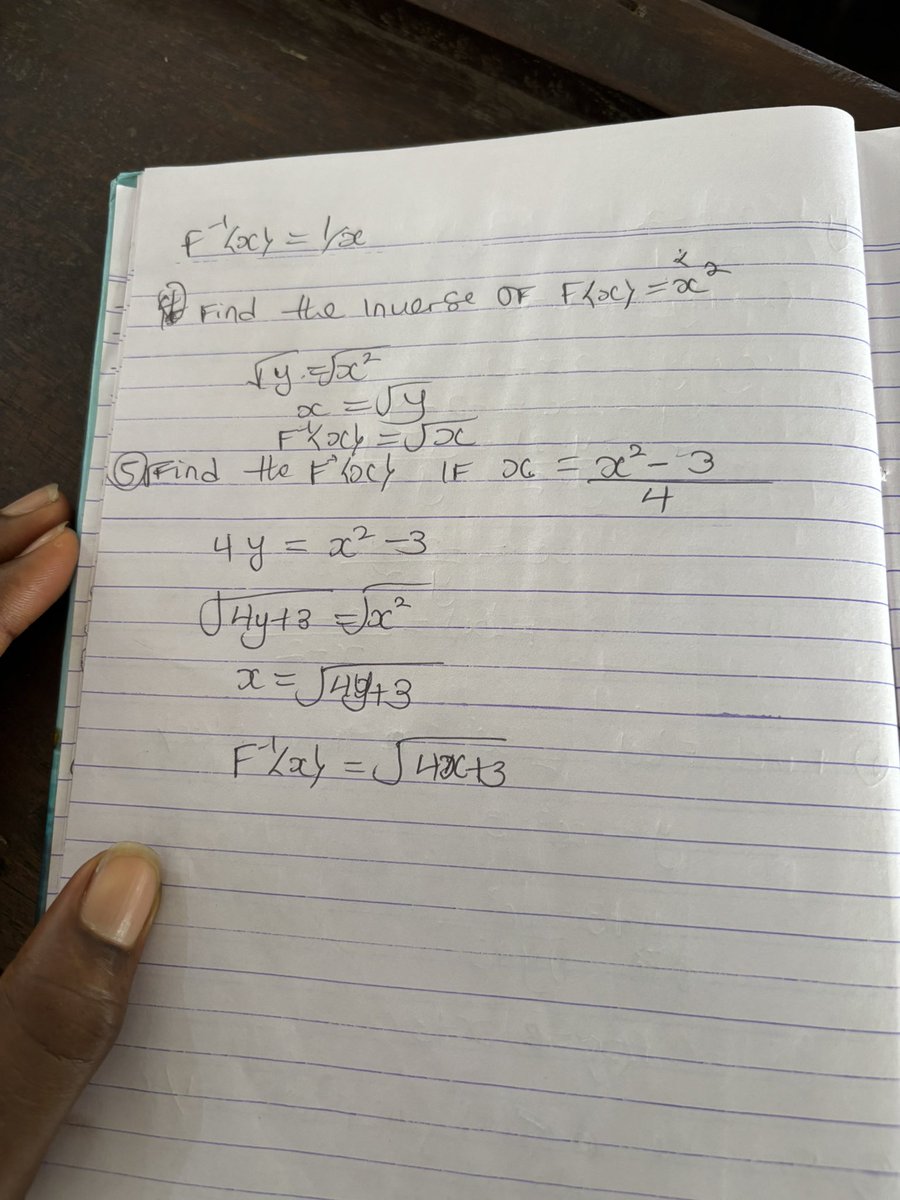 F⁻¹(x) = 1/x
④ Find the inverse OF F(x) = x²
√y = √x²
x = √y
F⁻¹(x) = √x
⑤ Find the F⁻¹(x) IF x = x² - 3 / 4
4y = x² - 3
√4y+3 = √x²
x = √4y+3
F⁻¹(x) = √4x+3